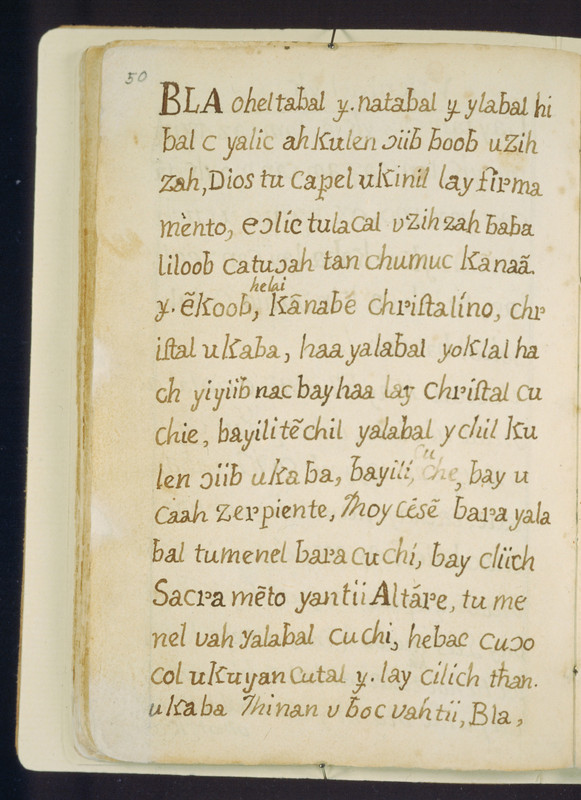 50
BLA oheltabal y. natabal y ylabal hi
bal c yalic ahKulen ɔiib hoob uzih
zah, Dios tu Capel uKinil lay firma
mènto, eɔlic tulacal vzihzah baba
liloob catuɔah tan chumuc Kanaã.
helai
y. ẽKoob, Kãnabé chriſtalíno, chr
iſtal uKaba, haa yalabal yoKlal ha
ch yiyiib nac bay haa lay Chriſtal cu
chie, bayili tẽchil yalabal ychil Ku
cu
len ɔiib uKaba, bayili, che, bay u
caah zerpiente, Moycésẽ bara yala
bal tumenel bara cuchí, bay cliich
Sacramẽto yantii Altáre, tu me
nel vah yalabal cuchi, hebac cuɔo
col uKuyan cutal y. lay cilich than.
uKaba Thinan v boc vahtii, Bla,